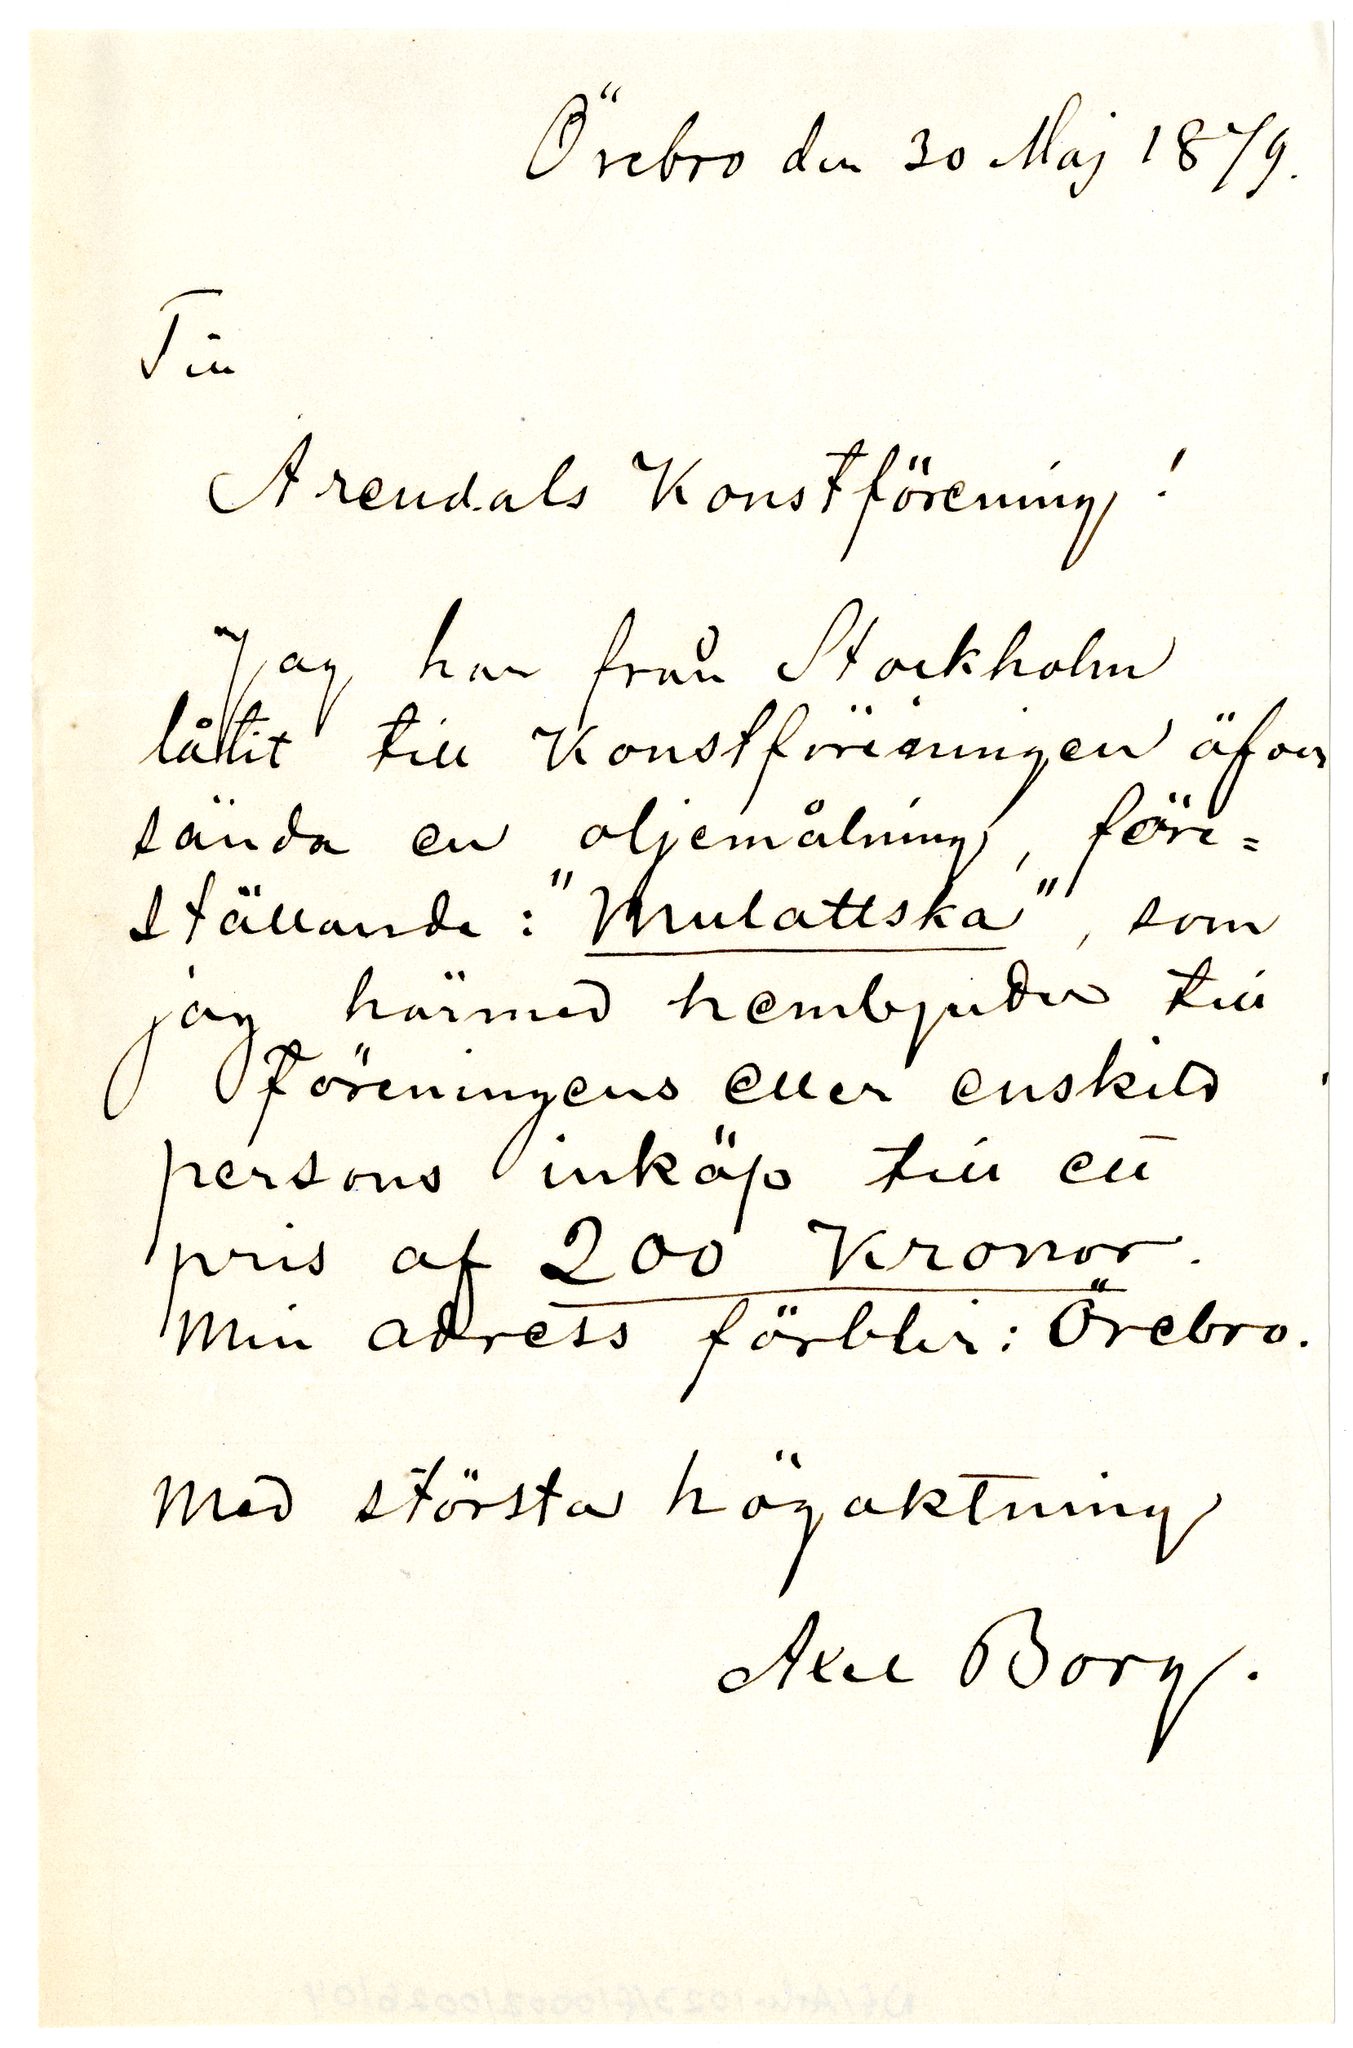 Örebro den 30 Maj 1879.
Till
Arendals Konstförening!
Jag har från Stockholm
låtit till Konstföreningen äfven
sända en oljemålning, före=
ställande: "Mulattska", som
jag härmed hembjuder till
föreningens eller enskild
persons inköp till ett
pris af 200 Kronor.
Min adress förblir: Örebro.
Med största högaktning
Axel Borg.